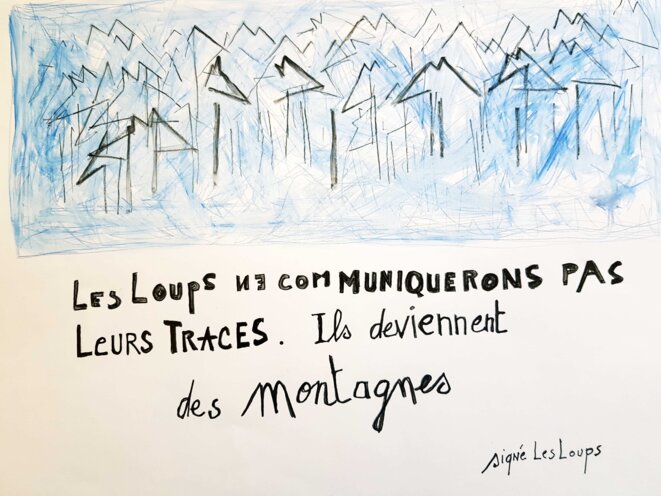 LES LOUPS NE COMMUNIQUERONS PAS
LEURS TRACES. Ils deviennent
des montagnes
signé Les Loups